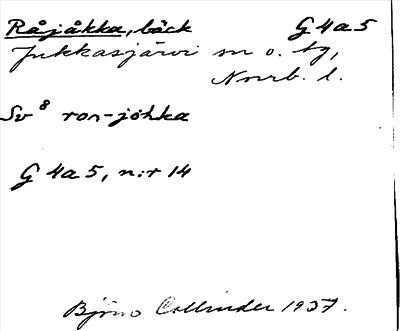 Råjåkka, bäck G4a5
Jukkasjärvi sn o. tg,
Norrb. l.
Sv⁸ ron-johka
G4a5, n:r 14
Björn Collinder 1937.